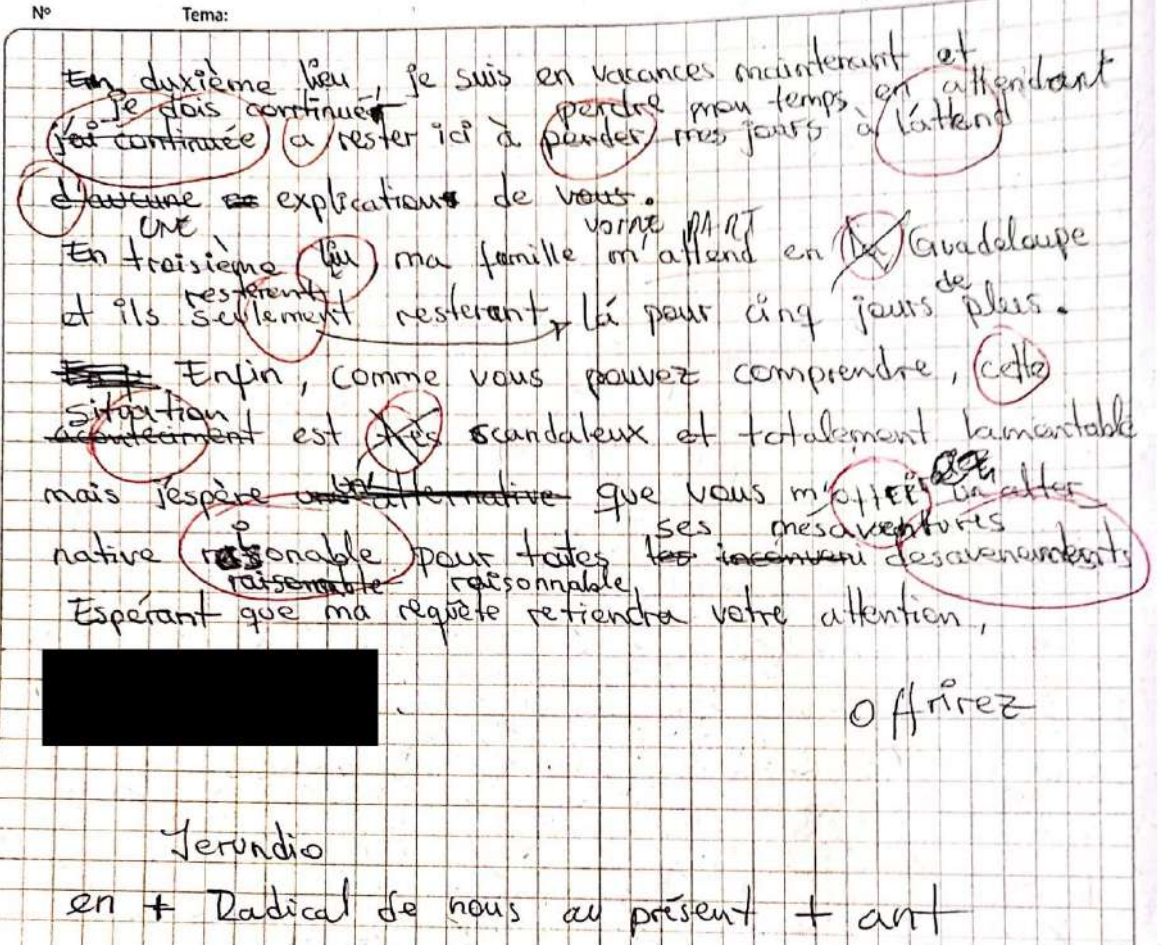 Nº Tema:
En duxième lieu, je suis en vacances maintenant et
je dois continuer perdre mon temps en attendant
j'ai continuée a rester ici à perder mes jours à l'attend
d'aucune explications de vous.
UNE VOTRE PART
En troisième lieu ma famille m'attend en Guadeloupe
resteront de
et ils seulement resterant là pour cinq jours plus.
Enfin, comme vous pouvez comprendre, cette
Situation
aconteciment est très scandaleux et totalement lamentable
mais j'espère une alternative que vous m'offrez un alter
ses mésaventures
native rasonable pour totes les inconveni desavenements
raisonable raisonnable
Espérant que ma requête retiendra votre attention,
Offrirez
Jerundio
en + Radical de nous au présent + ant